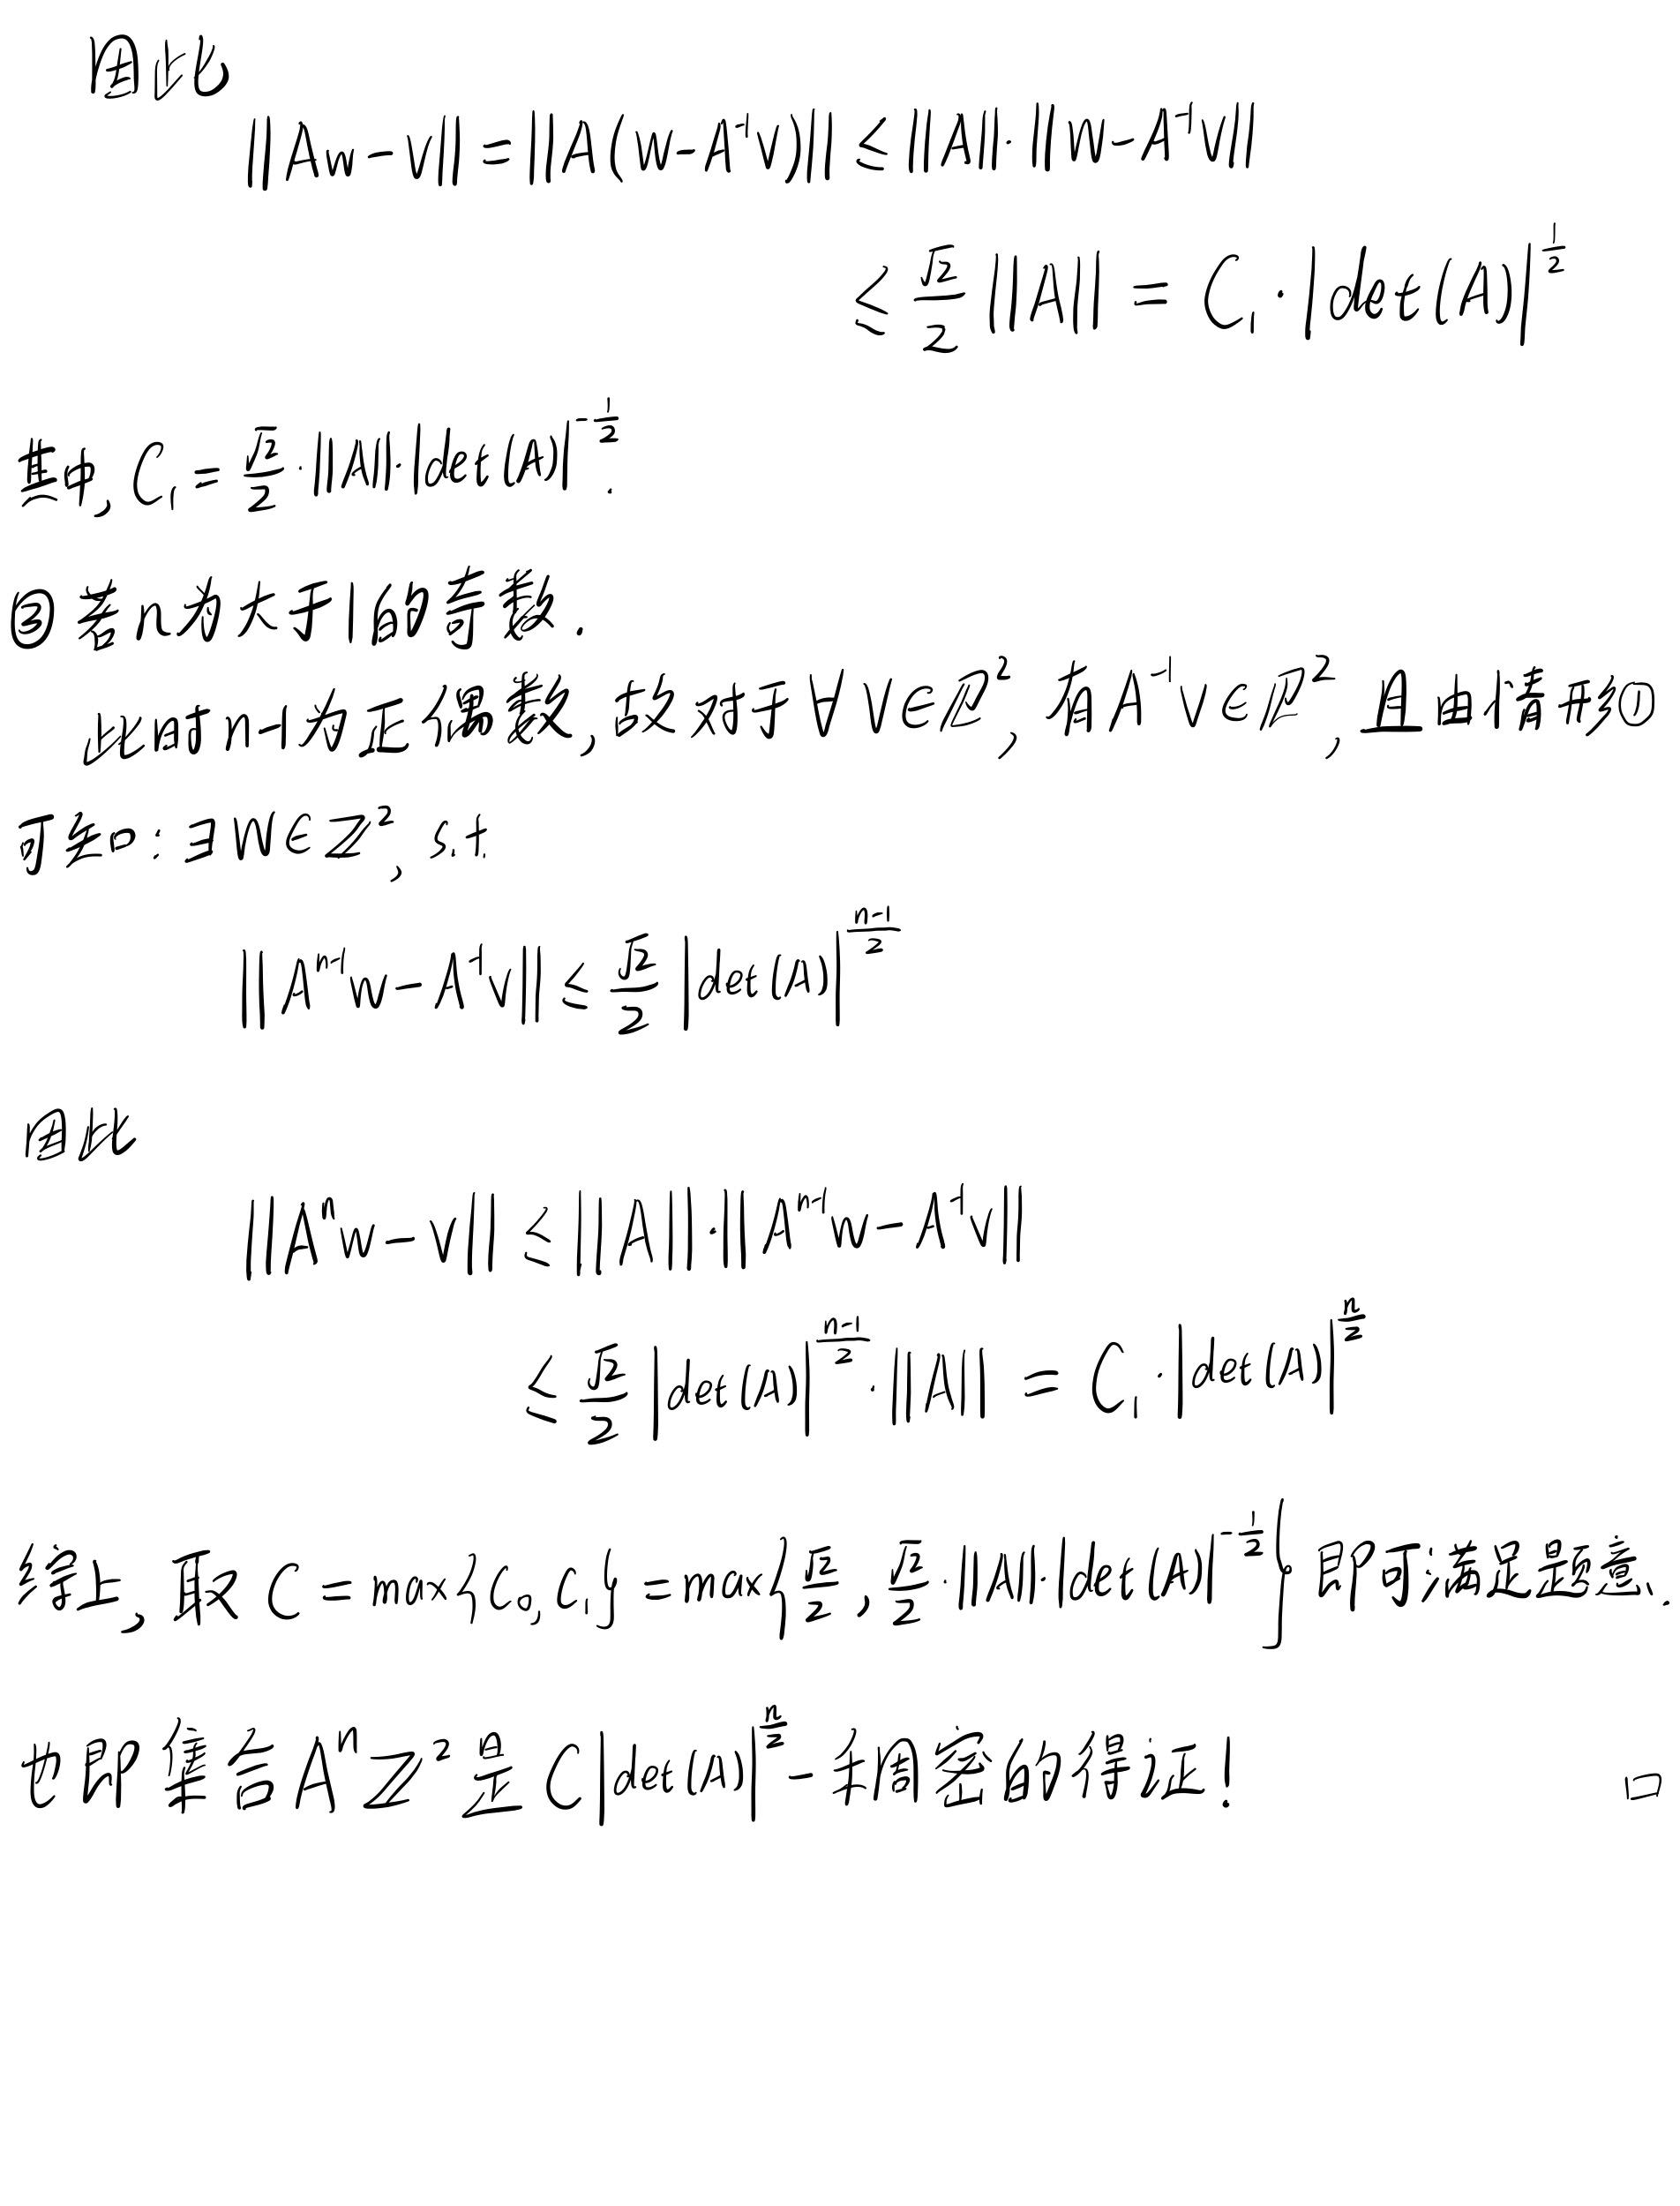 因此
||Aw-v|| = ||A(w-A⁻¹v)|| ≤ ||A||·||w-A⁻¹v||
≤ √2/2 ||A|| = C₁·|det(A)|^(1/2)
其中, C₁ = √2/2·||A||·|det(A)|^(-1/2).
③若n为大于1的奇数.
此时n-1为正偶数, 故对于∀v∈ℝ², 有A⁻¹v∈ℝ², 且由情形①
可知: ∃w∈ℤ², s.t.
||Aⁿ⁻¹w-A⁻¹v|| ≤ √2/2 |det(A)|^((n-1)/2)
因此
||Aⁿw-v|| ≤ ||A||·||Aⁿ⁻¹w-A⁻¹v||
≤ √2/2 |det(A)|^((n-1)/2)·||A|| = C₁·|det(A)|^(n/2)
综上, 取 C = max{C₀, C₁} = max{√2/2, √2/2·||A||·|det(A)|^(-1/2)} 即可满足题意.
也即集合Aⁿℤ²是 C|det(A)|^(n/2) - 稠密的得证! □